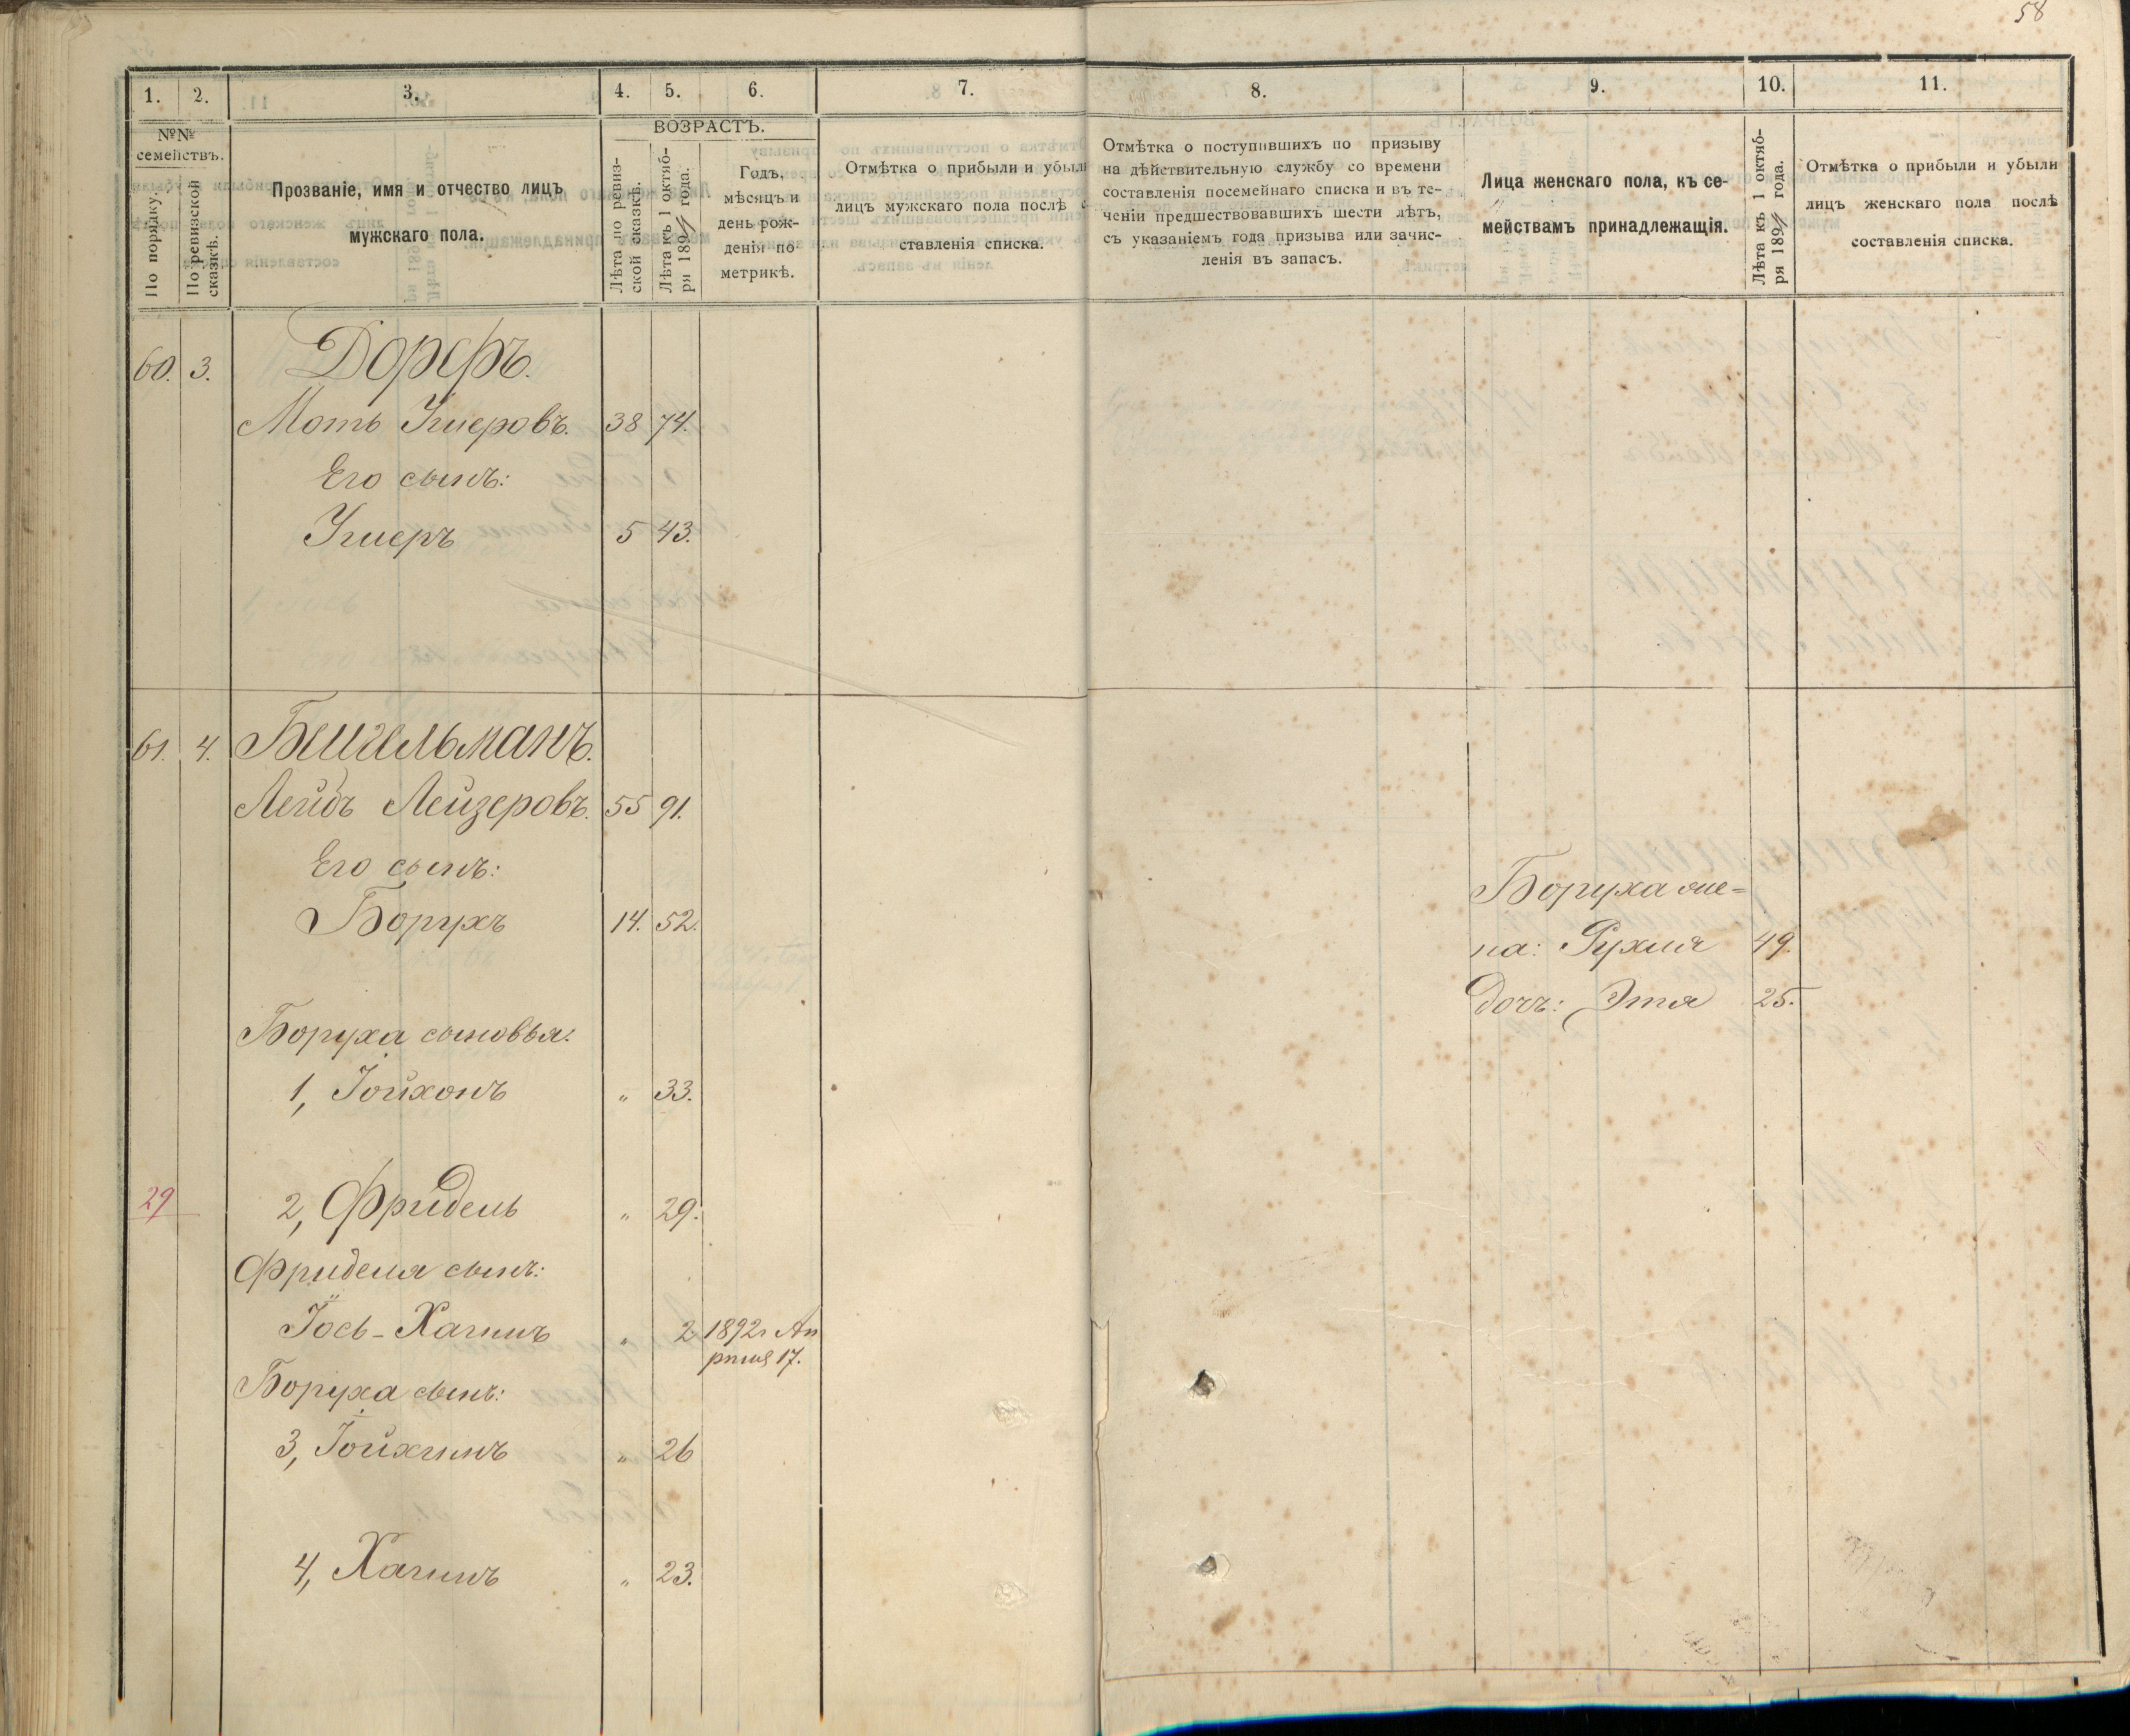 58
1. 2. 3. 4. 5. 6. 7. 8. 9. 10. 11.
№№ семействъ.
По порядку.
По ревизской сказкѣ.
Прозваніе, имя и отчество лицъ
мужскаго пола.
ВОЗРАСТЪ.
Лѣта по ревиз-
ской сказкѣ.
Лѣта къ 1 октяб-
ря 189 года.
Годъ,
мѣсяцъ и
день рож-
денія по
метрикѣ.
Отмѣтка о прибыли и убыли
лицъ мужскаго пола послѣ с
ставленія списка.
Отмѣтка о поступившихъ по призыву
на дѣйствительную службу со времени
составленія посемейнаго списка и въ те-
ченіи предшествовавшихъ шести лѣтъ,
съ указаніемъ года призыва или зачис-
ленія въ запасъ.
Лица женскаго пола, къ се-
мействамъ принадлежащія.
Лѣта къ 1 октяб-
ря 189 года.
Отмѣтка о прибыли и убыли
лицъ женскаго пола послѣ
составленія списка.
60. 3. Дорфъ.
Моть Ушеровъ. 38 74.
Его сынъ:
Ушеръ 5 43.
61. 4.
Лейбъ Лейзеровъ. 55 91.
Его сынъ:
Борухъ 14. 52.
Боруха же-
на: Рухля 49.
дочь: Этя 25.
Боруха сыновья:
1, Іойхонъ „ 33.
29 2, Фридель „ 29.
Фриделя сынъ:
Іось-Хаимъ „ 2 1892 г. Ап
рѣля 17.
Боруха сынъ:
3, „ 26
4, Хаимъ „ 23.